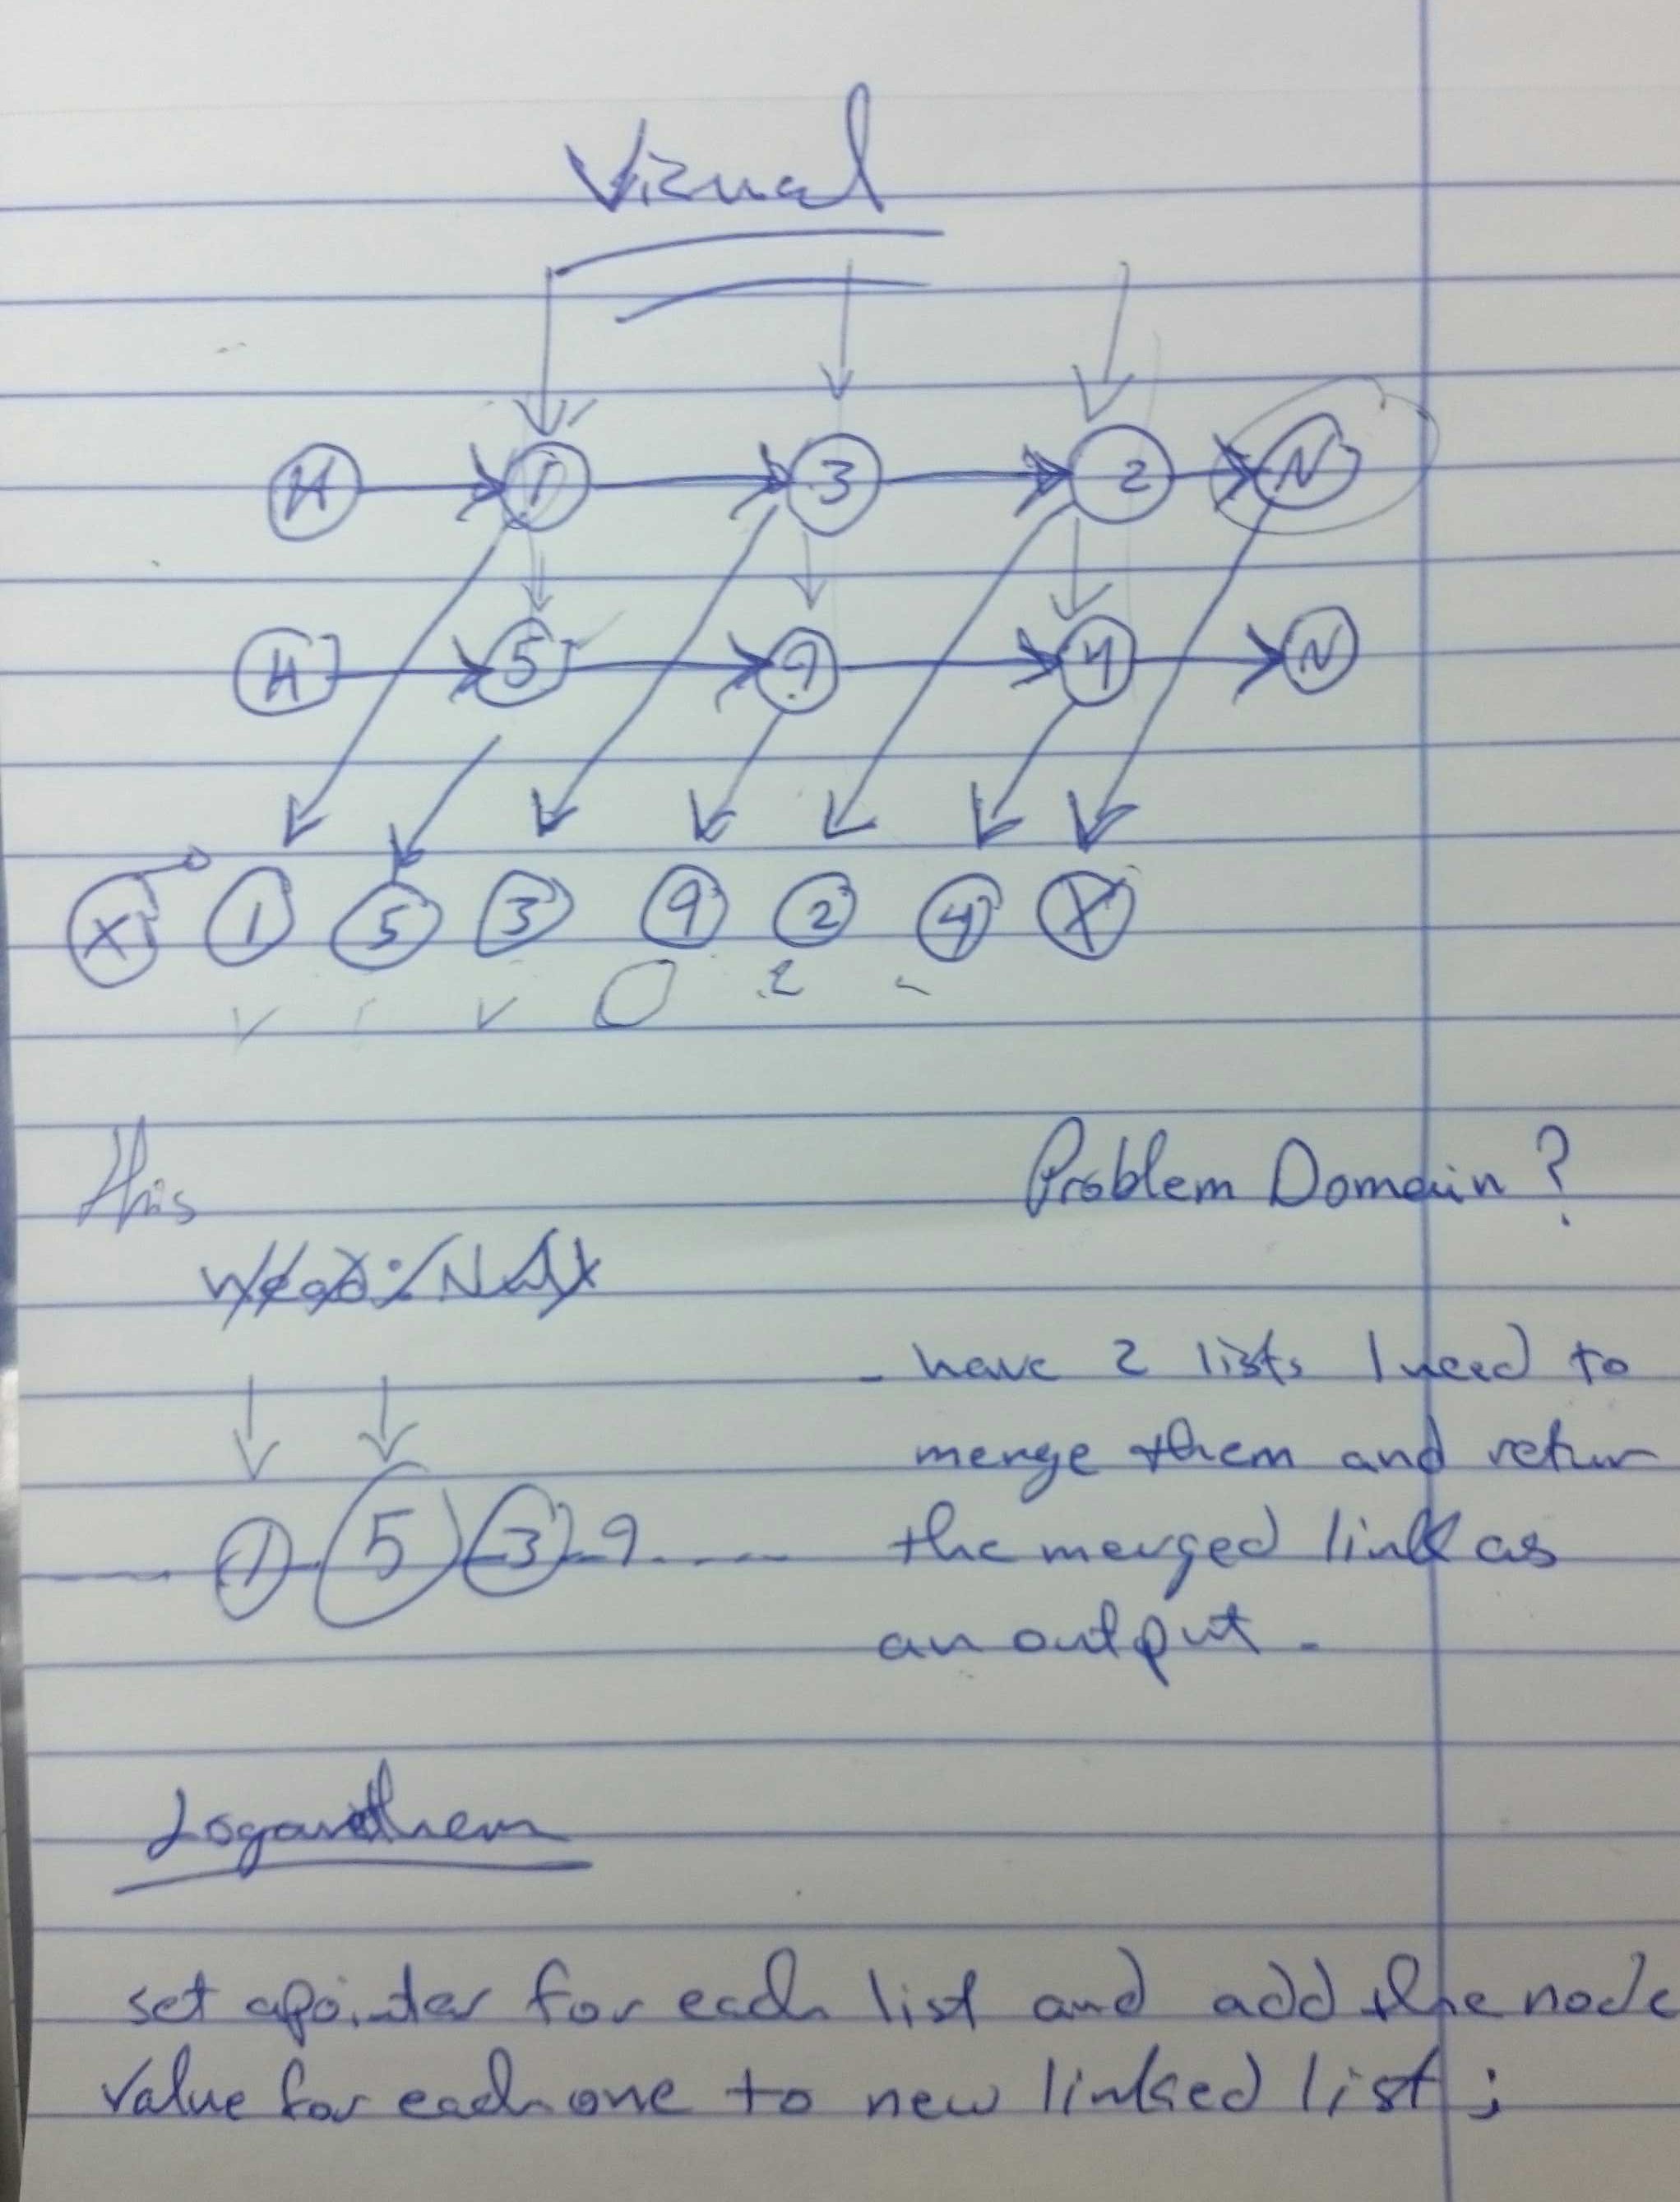 Visual
H 1 3 2 N
H 5 9 4 N
X 1 5 3 9 2 4 X
2
this
Problem Domain ?
- have 2 lists I need to
merge them and retur
1 5 3 9
the merged link as
an output .
Logarethem
set apointer for each list and add the node
value for each one to new linked list ;